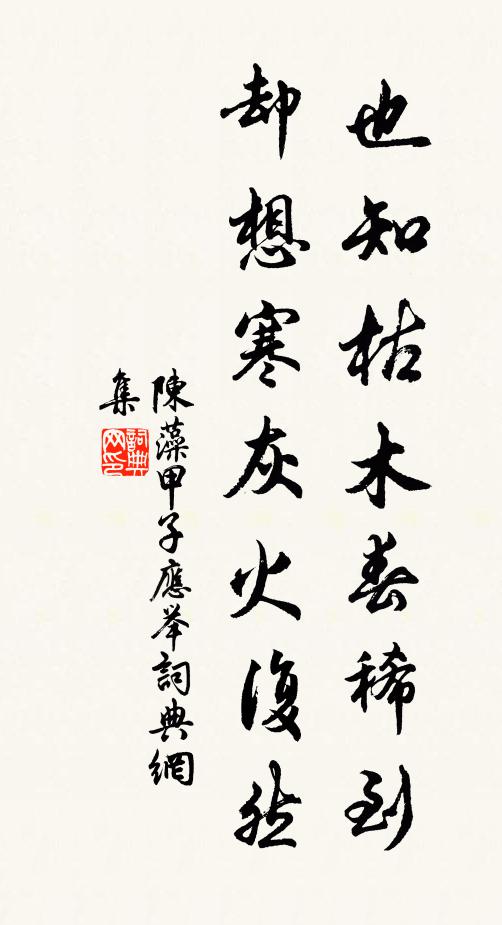 也知枯木春稀到
却想寒灰火復然
陳藻甲子應举詞典網
集
詞典网印